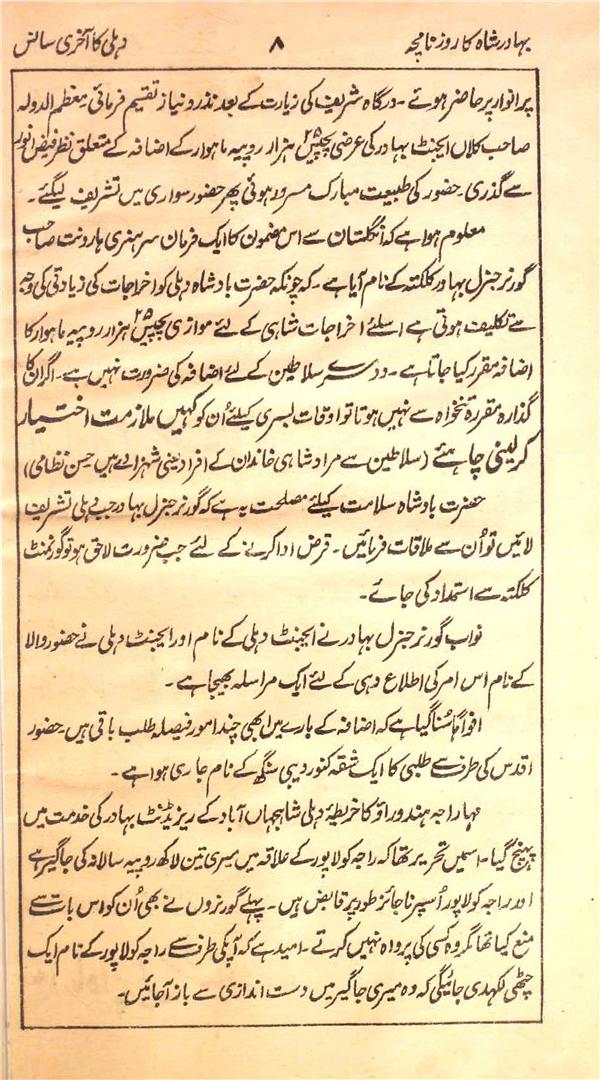 بہادر شاہ کا روزنامچہ ۸ دہلی کا آخری سانس
پر انوار پر حاضر ہوئے ۔ درگاہ شریف کی زیارت کے بعد نذر و نیاز تقسیم فرمائی معظم الدولہ
صاحب کلاں ایجنٹ بہادر کی عرضی پچیس ۲۵ ہزار روپیہ ماہوار کے اضافہ کے متعلق نظر فیض انور
سے گذری ۔ حضور کی طبیعت مبارک مسرور ہوئی پھر حضور سواری میں تشریف لیگئے ۔
معلوم ہوا ہے کہ انگلستان سے اس مضمون کا ایک فرمان سر ہنری ہارونٹ صاحب
گورنر جنرل بہادر کلکتہ کے نام آیا ہے ۔ کہ چونکہ حضرت بادشاہ دہلی کو اخراجات کی زیادتی کی وجہ
سے تکلیف ہوتی ہے اسلئے اخراجات شاہی کے لئے موازی پچیس ۲۵ ہزار روپیہ ماہوار کا
اضافہ مقرر کیا جاتا ہے ۔ دوسرے سلاطین کے لئے اضافہ کی ضرورت نہیں ہے ۔ اگر ان کا
گذارہ مقررہ تنخواہ سے نہیں ہوتا تو اوقات بسری کیلئے اُن کو کہیں ملازمت اختیار
کر لینی چاہئے (سلاطین سے مراد شاہی خاندان کے افراد یعنی شہزادے ہیں حسن نظامی)
حضرت بادشاہ سلامت کیلئے مصلحت یہ ہے کہ گورنر جنرل بہادر جب دہلی تشریف
لائیں تو اُن سے ملاقات فرمائیں ۔ قرض ادا کرنے کے لئے جب ضرورت لاحق ہو تو گورنمنٹ
کلکتہ سے استمداد کی جائے ۔
نواب گورنر جنرل بہادر نے ایجنٹ دہلی کے نام اور ایجنٹ دہلی نے حضور والا
کے نام اس امر کی اطلاع دہی کے لئے ایک مراسلہ بھیجا ہے ۔
افواہاً سُنا گیا ہے کہ اضافہ کے بارے میں ابھی چند امور فیصلہ طلب باقی ہیں ۔ حضور
اقدس کی طرف سے طلبی کا ایک شقہ کنور دیبی سنگھ کے نام جاری ہوا ہے ۔
مہاراجہ ہندو راؤ کا خریطہ دہلی شاہجہاں آباد کے ریزیڈنٹ بہادر کی خدمت میں
پہنچ گیا ۔ اسمیں تحریر تھا کہ راجہ کولاپور کے علاقہ میں میری تین لاکھ روپیہ سالانہ کی جاگیر ہے
اور راجہ کولاپور اُسپر ناجائز طور پر قابض ہیں ۔ پہلے گورنروں نے بھی اُن کو اس بات سے
منع کیا تھا مگر وہ کسی کی پرواہ نہیں کرتے ۔ امید ہے کہ آپکی طرف سے راجہ کولاپور کے نام ایک
چٹھی لکھدی جائیگی کہ وہ میری جاگیر میں دست اندازی سے باز آجائیں ۔